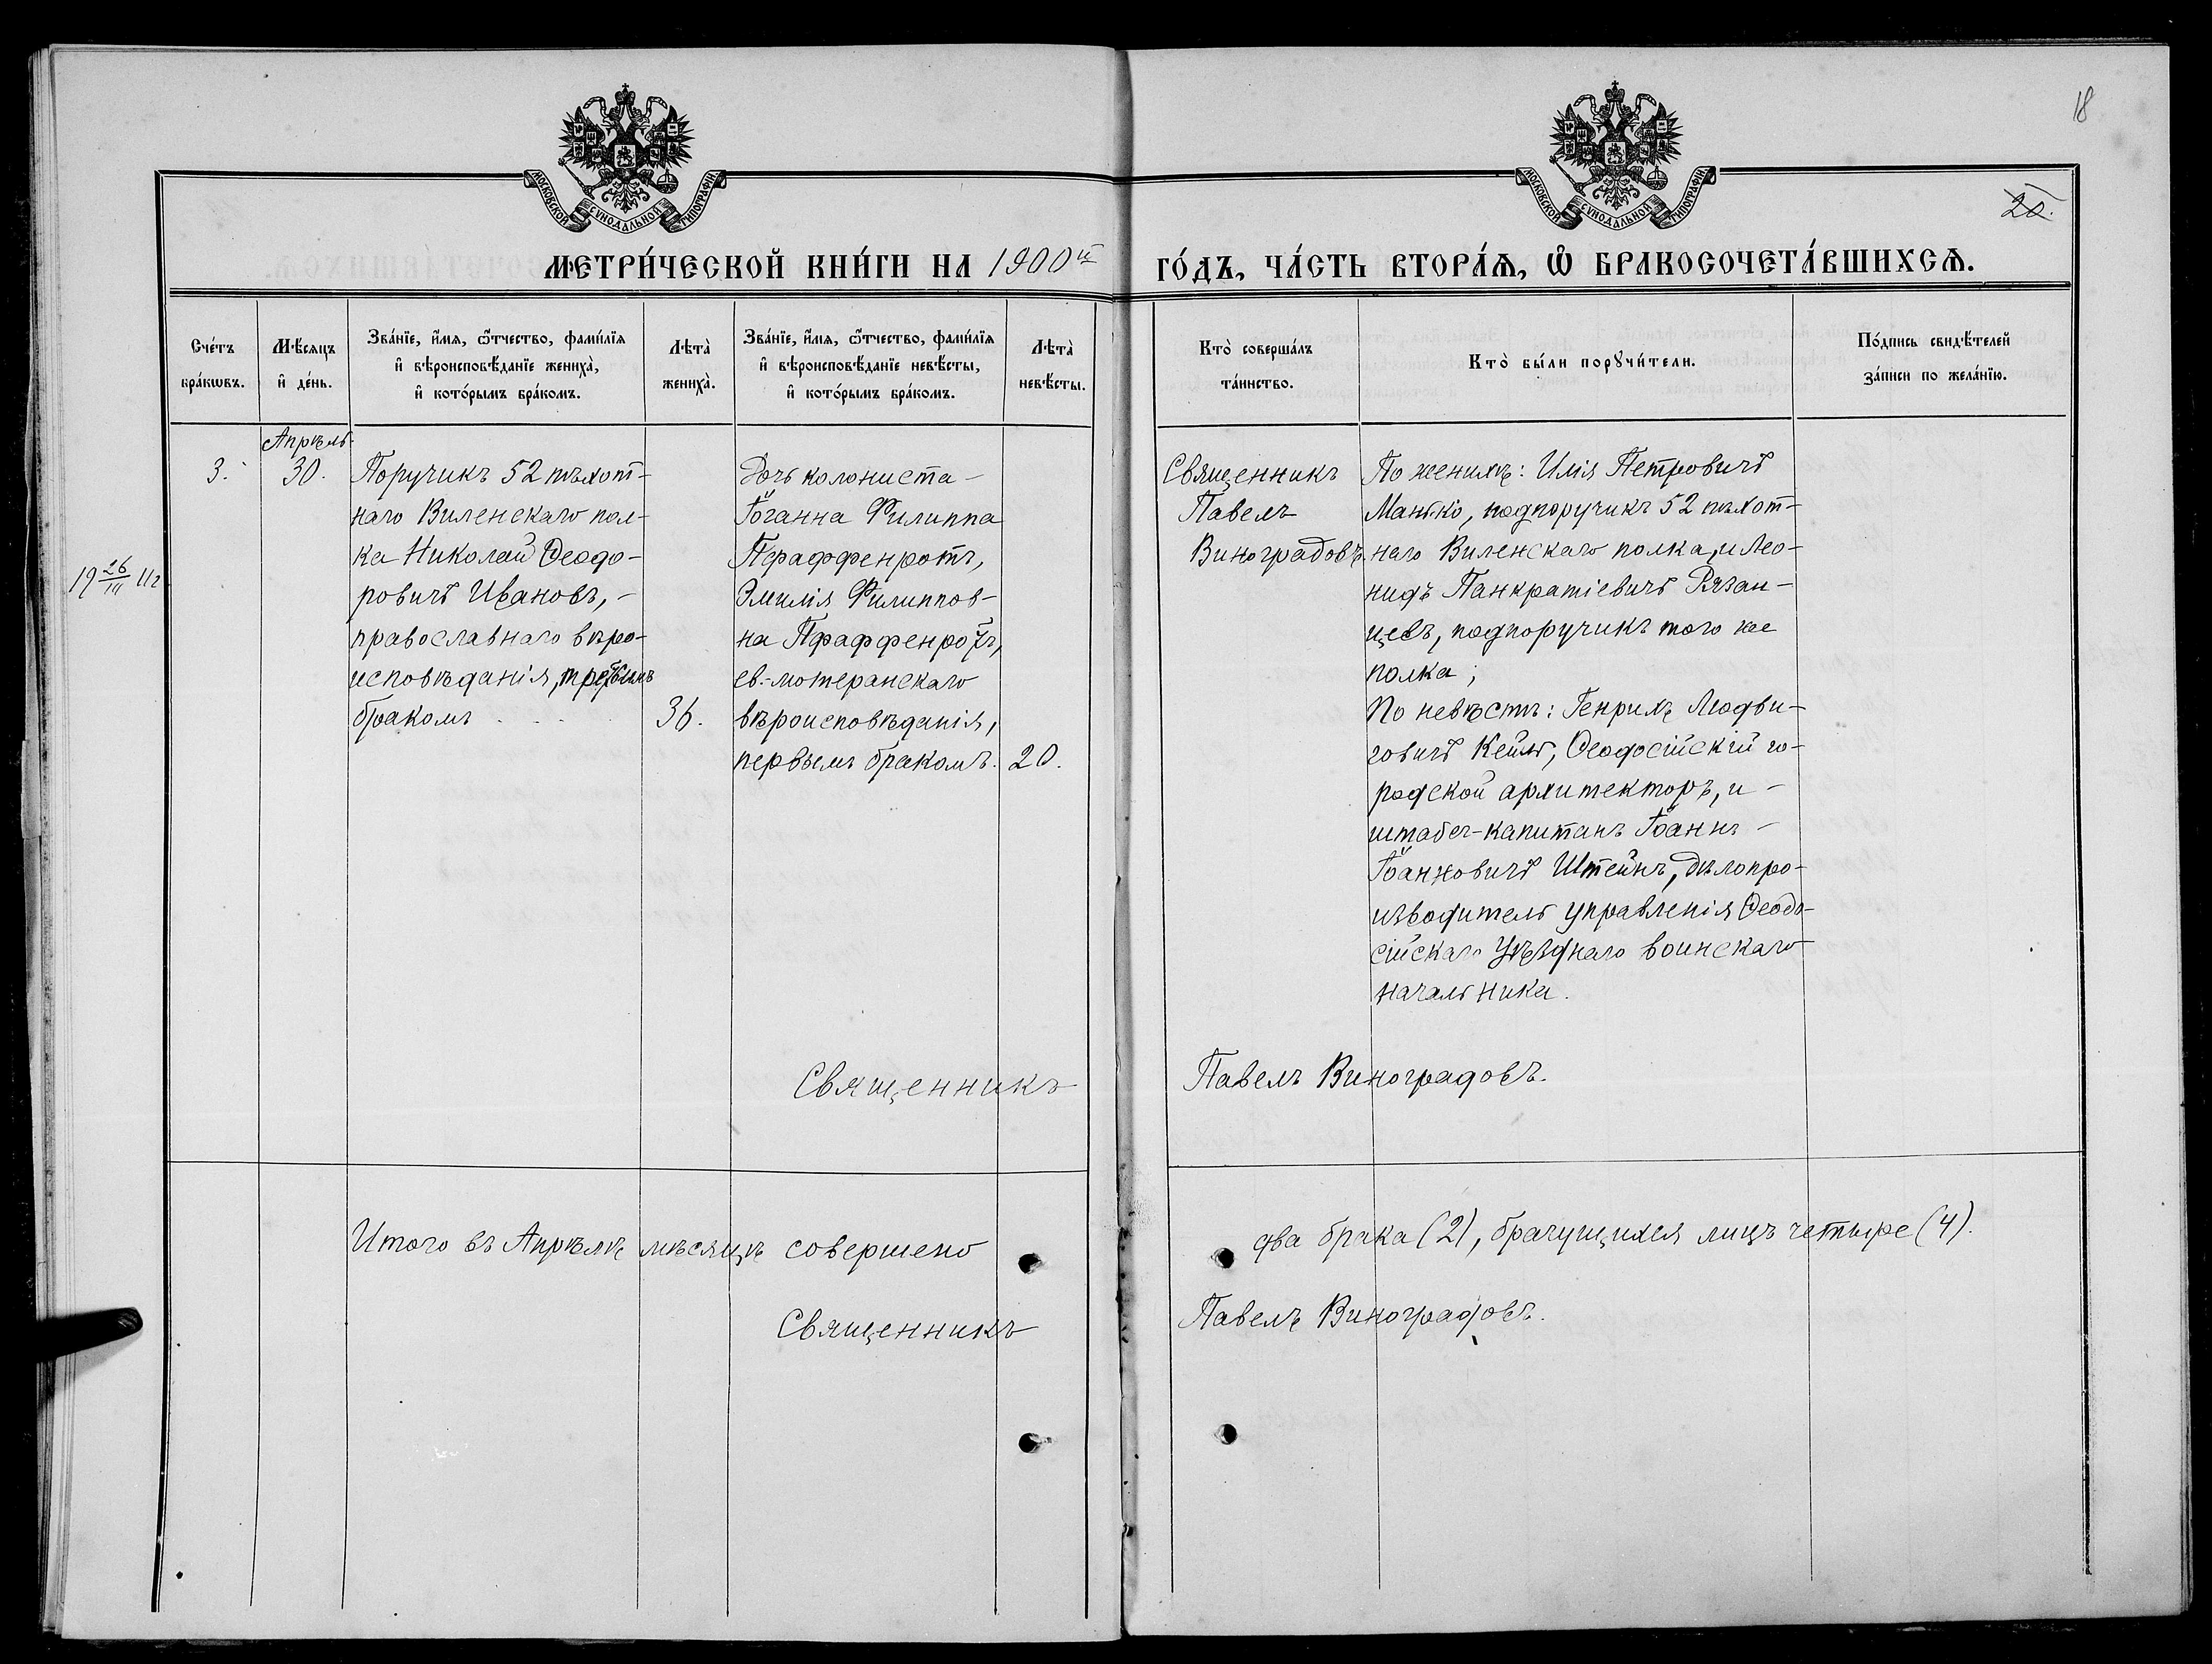 18
20.
МОСКОВСКОЙ СѴНОДАЛЬНОЙ ТИПОГРАФІИ
МОСКОВСКОЙ СѴНОДАЛЬНОЙ ТИПОГРАФІИ
МЕТРИ́ЧЕСКОЙ КНИ́ГИ НА 1900й ГО́ДЪ, ЧА́СТЬ ВТОРА́Ѧ, Ѽ БРАКОСОЧЕТА́ВШИХСѦ.
Сче́тъ
бра́кѡвъ.
Мѣ́сяцъ
и҆ де́нь.
Зва́нїе, и҆́мя, ѻ҆́тчество, фами́лїя
и҆ вѣроисповѣ́данїе жениха̀,
и҆ кото́рымъ бра́комъ.
Лѣта̀
жениха̀.
Зва́нїе, и҆́мя, ѻ҆́тчество, фами́лїя
и҆ вѣроисповѣ́данїе невѣ́сты,
и҆ кото́рымъ бра́комъ.
Лѣта̀
невѣ́сты.
Кто̀ соверша́лъ
та́инство.
Кто̀ бы́ли порꙋчи́тели.
По́дпись свидѣ́телей
за́писи по жела́нїю.
3.
Апрѣль
30.
Поручикъ 52 пѣхот-
наго Виленскаго пол-
ка Николай Ѳеодо-
ровичъ Ивановъ, -
православнаго вѣро-
исповѣданія,
бракомъ
36.
Дочь колониста -
Іоганна Филиппа
Пфаффенротъ,
Эмилія Филиппов-
на Пфаффенротъ,
ев.-лютеранскаго
вѣроисповѣданія,
первымъ бракомъ.
20.
Священникъ
Павелъ
Виноградовъ.
По женихѣ: Илія Петровичъ
Манько, подпоручикъ 52 пѣхот-
наго Виленскаго полка, и Лео-
нидъ Панкратіевичъ Рязан-
цевъ, подпоручикъ того же
полка;
По невѣстѣ: Генрихъ Людви-
говичъ Кейль, Ѳеодосійскій го-
родской архитекторъ, и -
штабсъ-капитанъ Іоаннъ -
Іоанновичъ Штейнъ, дѣлопро-
изводитель управленія Ѳеодо-
сійскаго Уѣзднаго воинскаго
начальника.
19 26/III 11 г
Священникъ Павелъ Виноградовъ.
Итого въ Апрѣлѣ мѣсяцѣ совершено два брака (2), брачущихся лицъ четыре (4).
Священникъ Павелъ Виноградовъ.